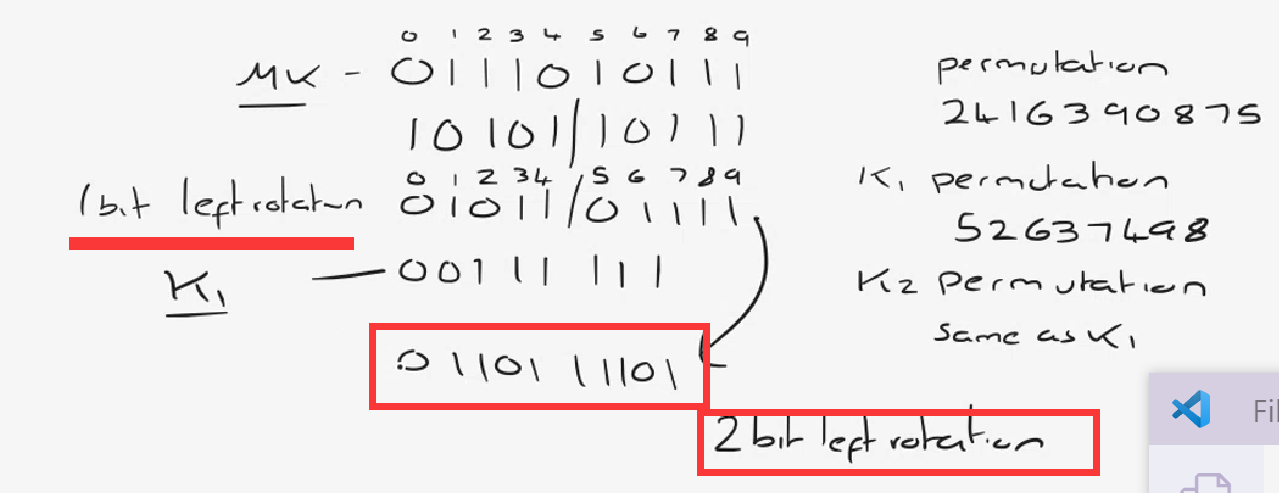 0 1 2 3 4 5 6 7 8 9
MK - 0 1 1 1 0 1 0 1 1 1
1 0 1 0 1 / 1 0 1 1 1
0 1 2 3 4 / 5 6 7 8 9
1 bit left rotatun 0 1 0 1 1 / 0 1 1 1 1
K1 — 0 0 1 1 1 1 1 1
0 1 1 0 1 1 1 1 0 1
2 bit left rotation
permutation
2 4 1 6 3 9 0 8 7 5
K1 permutation
5 2 6 3 7 4 9 8
K2 permutation
same as K1
Fil